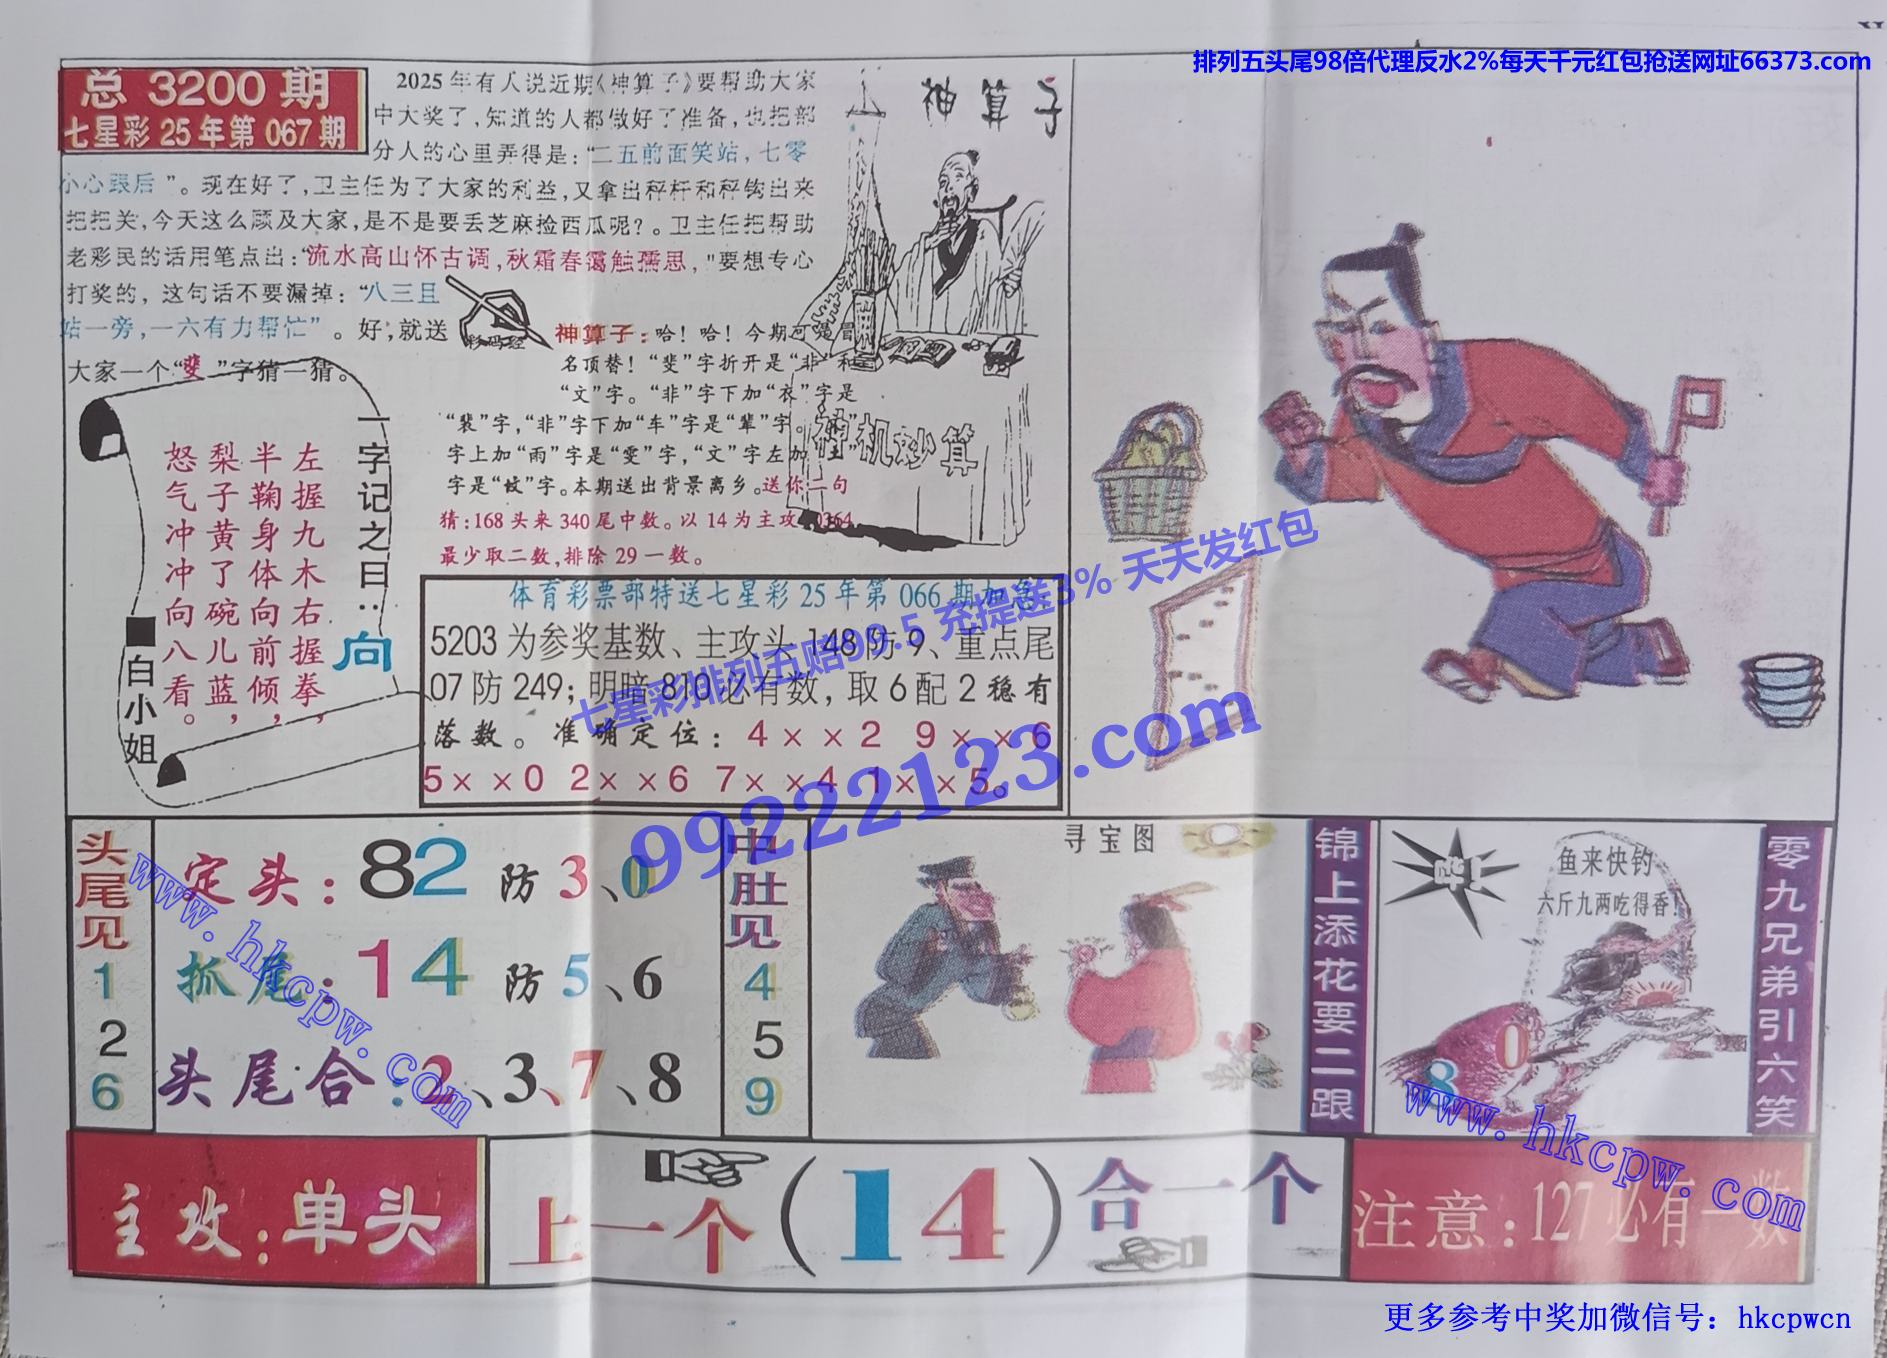 排列五头尾98倍代理反水2%每天千元红包抢送网址66373.com
总 3200 期
七星彩 25 年第 067 期
2025 年有人说近期《神算子》要帮助大家
中大奖了，知道的人都做好了准备，也把部
分人的心里弄得是：“二五前面笑站，七零
小心跟后”。现在好了，卫主任为了大家的利益，又拿出秤杆和秤钩出来
把把关，今天这么顾及大家，是不是要丢芝麻捡西瓜呢？。卫主任把帮助
老彩民的话用笔点出：“流水高山怀古调，秋霜春霭触孺思，"要想专心
打奖的，这句话不要漏掉：“八三且
站一旁，一六有力帮忙”。好，就送
大家一个“斐”字猜一猜。
彩码经
神算子
神算子：哈！哈！今期可是冒
名顶替！“斐”字折开是“非”和
“文”字。“非”字下加“衣”字是
“裴”字，“非”字下加“车”字是“辈”字。
字上加“雨”字是“雯”字，“文”字左加
字是“蚊”字。本期送出背景离乡。送你二句
猜：168 头来 340 尾中数。以 14 为主攻 0364
最少取二数，排除 29 一数。
神机妙算
一字记之曰：向
左握九木右握拳，
半鞠身体向前倾，
梨子黄了碗儿蓝，
怒气冲冲向八看。
■白小姐
体育彩票部特送七星彩 25 年第 066 期加急
5203 为参奖基数、主攻头 148 防 9、重点尾
07 防 249；明暗 810 必有数，取 6 配 2 稳有
落数。准确定位：4××2 9××6
5××0 2××6 7××4 1××5。
七星彩排列五赔99.5 充提送3% 天天发红包
99222123.com
头尾见
1
2
6
定头：82 防 3、0
抓尾：14 防 5、6
头尾合：2、3、7、8
www.hkcpw.com
中肚见
4
5
9
寻宝图
锦上添花要二跟
鱼来快钓
六斤九两吃得香！
8
0
零九兄弟引六笑
www.hkcpw.com
主攻：单头
上一个（14）合一个
注意：127 必有一数
更多参考中奖加微信号：hkcpwcn